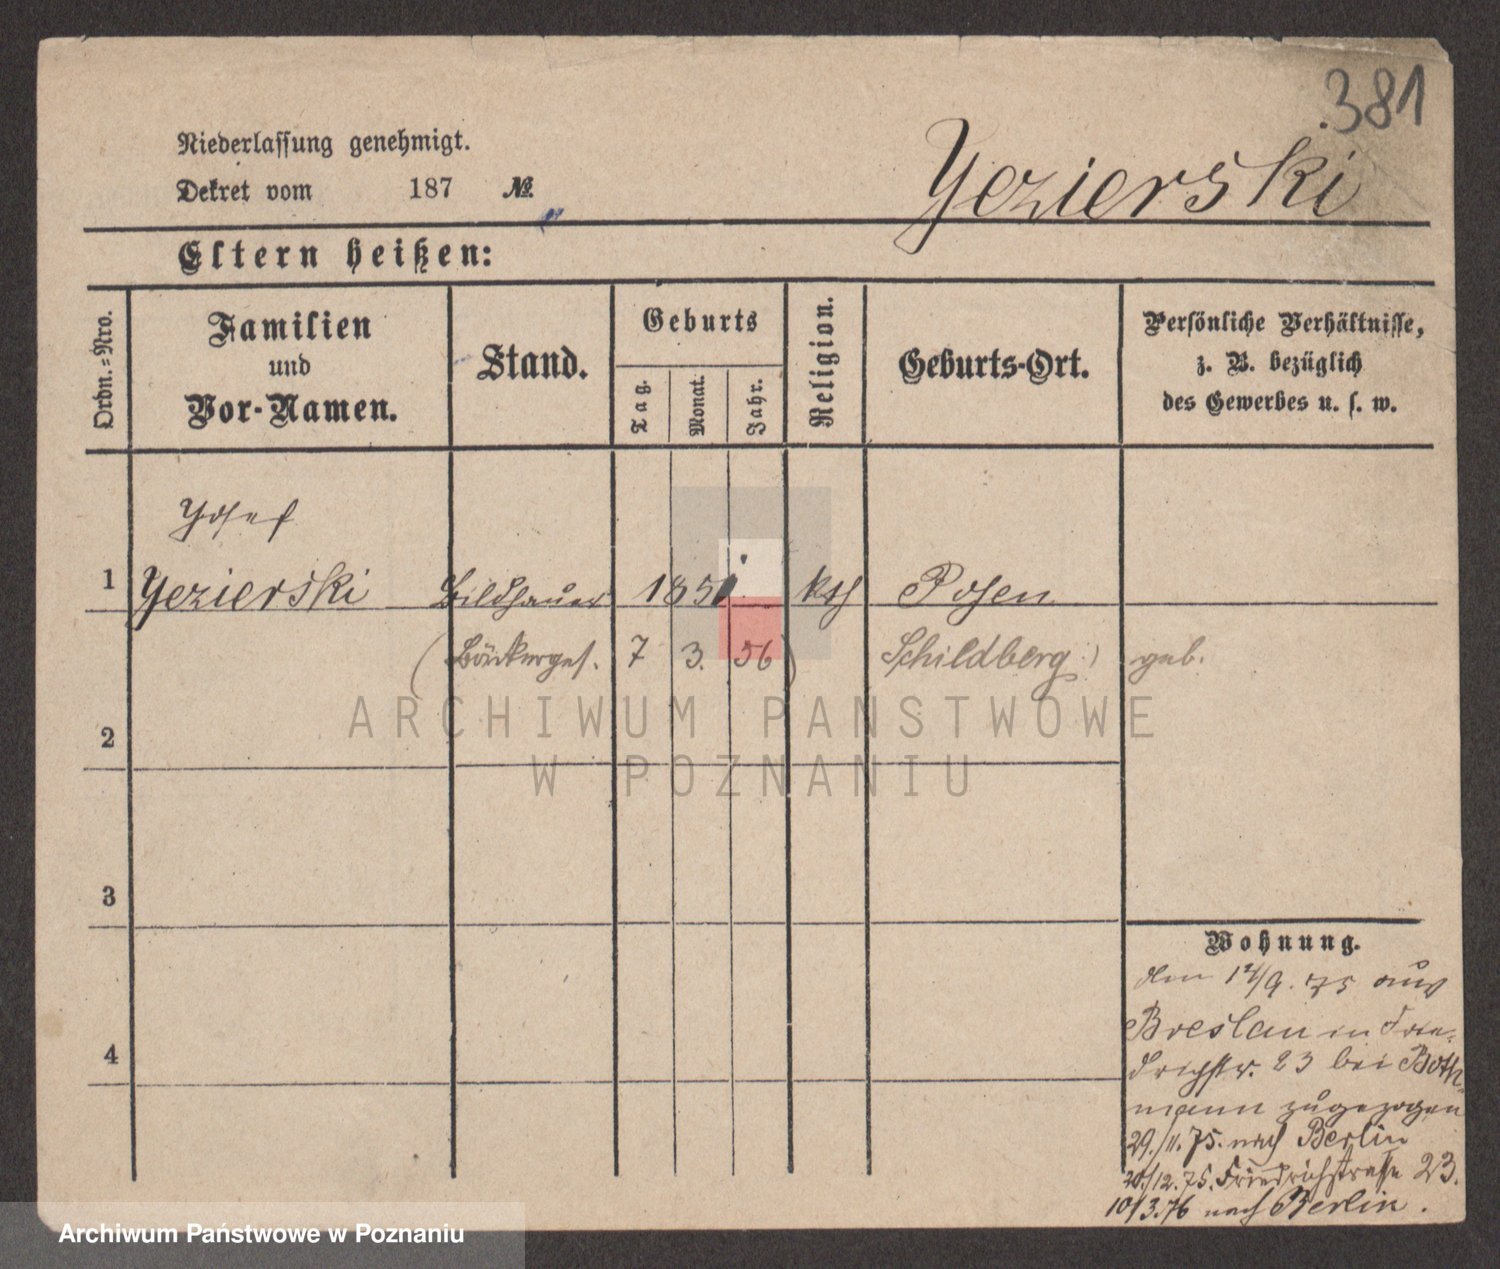 381
Niederlassung genehmigt.
Yezierski
Dekret vom 187 №
Eltern heißen:
Ordn.-Nro.
Familien
und
Vor-Namen.
Stand.
Geburts
Tag.
Monat.
Jahr.
Religion.
Geburts-Ort.
Persönliche Verhältnisse,
z. B. bezüglich
des Gewerbes u. s. w.
Yosef
1 Yezierski Bildhauer 1851 kth Posen
(Bäckerges. 7 3. 56) Schildberg) geb.
ARCHIWUM PAŃSTWOWE
W POZNANIU
2
3
4
Wohnung.
den 14/9. 75 aus
Breslau in Frie-
drichstr. 23 bei Both-
mann zugezogen
29./11. 75. nach Berlin
20/12. 75. Friedrichstrasse 23.
10/3. 76 nach Berlin.
Archiwum Państwowe w Poznaniu